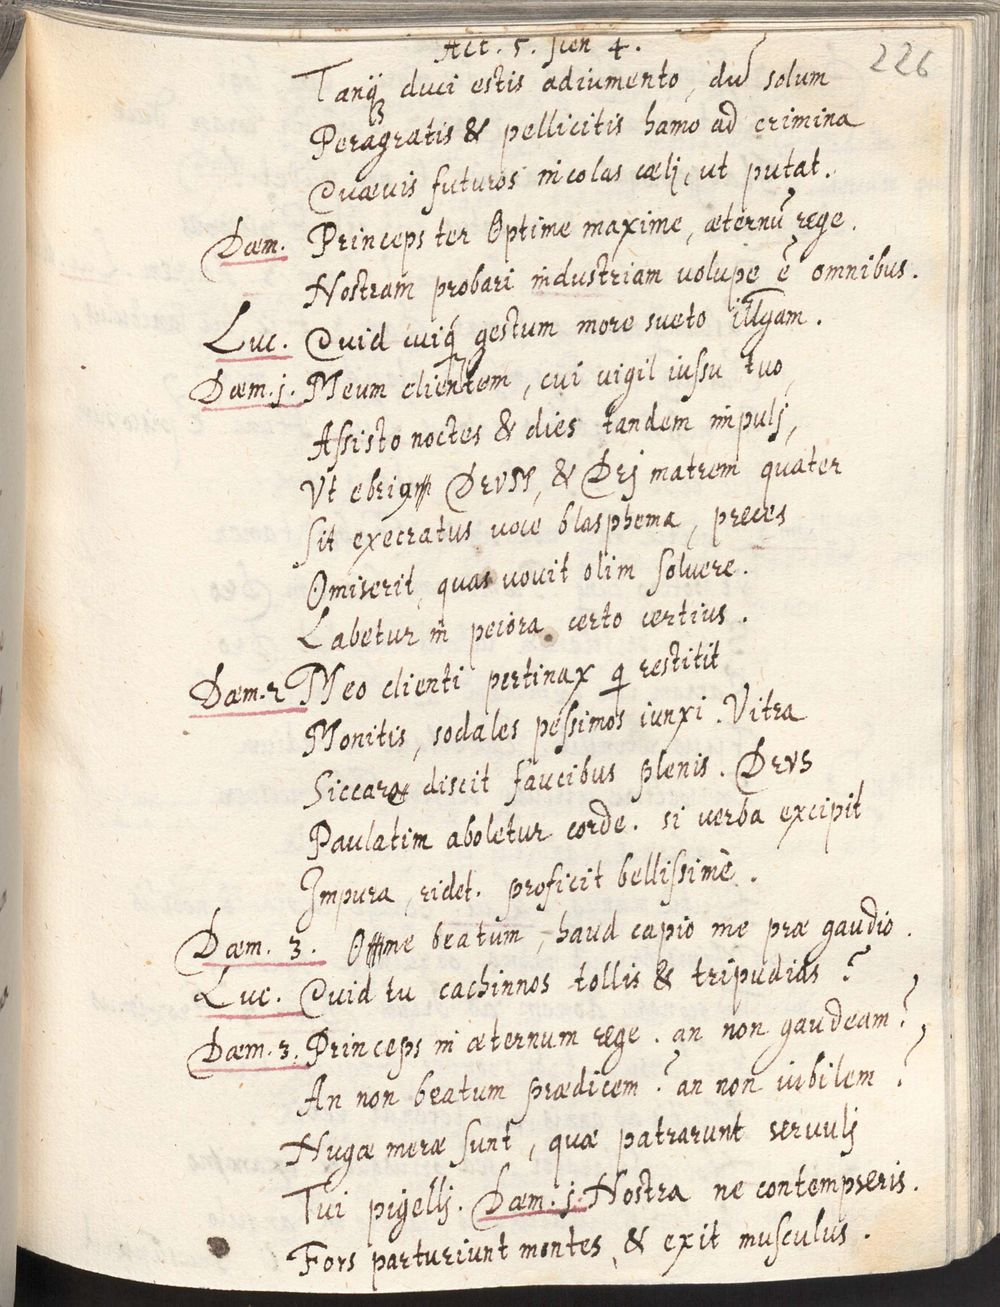 Act. 5. scen 4.
226
Tanq́ꝫ duci estis adiumento, dū solum
Peragratis & pellicitis hamo ad crimina
Quævis futuros incolas cælj, ut putat.
Dæm. Princeps ter Optime maxime, æternū rege.
Nostram probari industriam volupe ē omnibus.
Luc. Quid cuiq́ꝫ gestum more sueto
Dæm. j. Meum clientem, cui vigil iussu tuo
Assisto noctes & dies tandem impulj,
Vt ebrium DEVM, & Dej matrem quater
Sit execratus voce blasphema, preces
Omiserit, quas vovit olim solvere.
Labetur in peiora certo certius.
Dæm. 2 Meo clienti pertinax qͥ restitit
Monitis, sodales pessimos iunxi. Vitra
Siccare discit faucibus plenis. DEVS
Paulatim aboletur corde. si verba excipit
Impura, ridet. proficit bellissimè.
Dæm. 3. O me beatum, haud capio me præ gaudio.
Luc. Quid tu cachinnos tollis & tripudias?
Dæm. 3. Princeps in æternum rege. an non gaudeam?
An non beatum prædicem? an non iubilem?
Nugæ meræ sunt, quæ patrarunt servulj
Tui pigellj. Dæm. j. Nostra ne contempseris.
Fors parturiunt montes, & exit musculus.